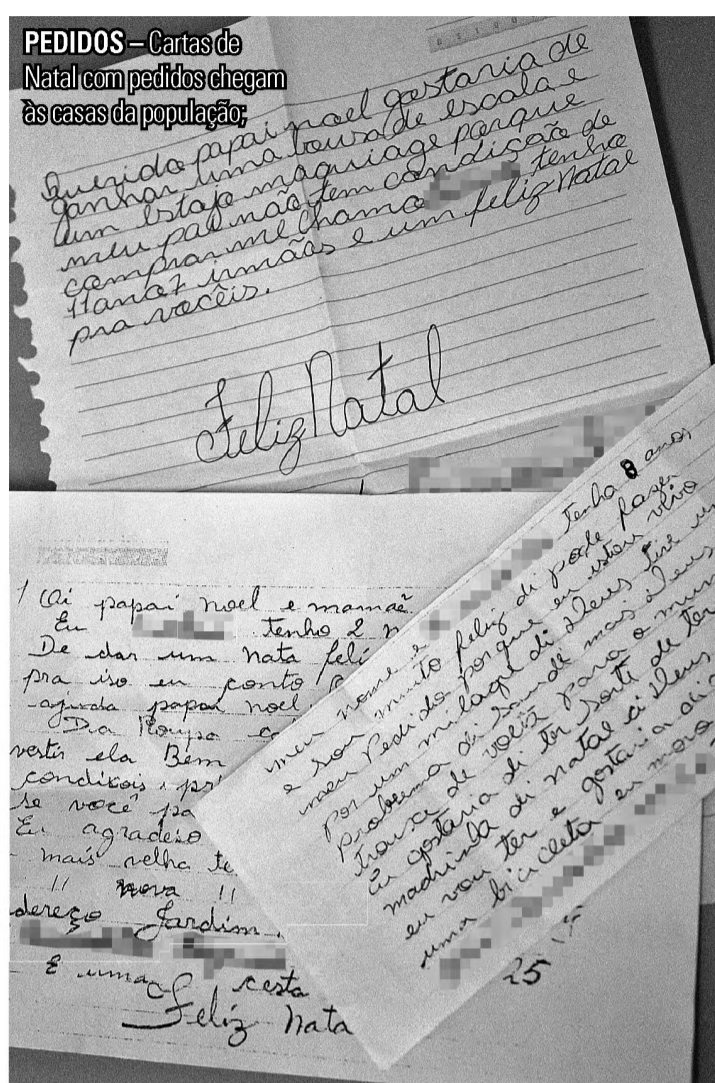 PEDIDOS – Cartas de
Natal com pedidos chegam
às casas da população;
Querido papai noel gostaria de
ganhar uma lousa de escola e
um estojo maquiage porque
meu pai não tem condição de
comprar me chamo tenho
11 ano 7 irmãos e um feliz Natal
pra vocêis.
Feliz Natal
Oi papai noel e mamãe
Eu tenho 2
De dar um nata
pra iso eu conto
ajuda papai noel
Dia Roupa
vestir ela Bem
condixois
se você
Eu agradeso
mais velha
!! nova !!
dereço Jardim
E uma cesta
Feliz Nata
meu nome e tenho 8 anos
e sou muito feliz di pode fazer
meu Pedido porque eu estou vivo
Por um milagre di deus tive
Problema di saudé mais deus
trouxe de volta para o mun
Eu gostaria di ter sorti de ter
madrinha di natal si deus
eu vou ter e gostaria di
uma bicicleta eu moro
25